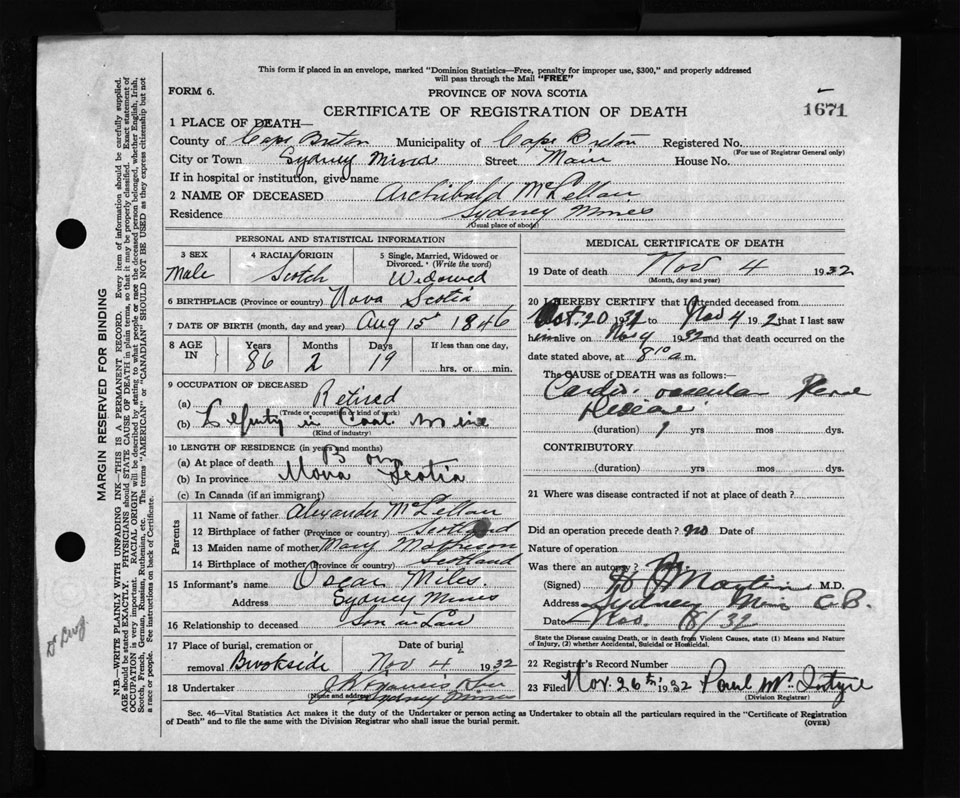 This form if placed in an envelope, marked "Dominion Statistics—Free, penalty for improper use, $300," and properly addressed
will pass through the Mail "FREE"
FORM 6.
PROVINCE OF NOVA SCOTIA
CERTIFICATE OF REGISTRATION OF DEATH
1671
1 PLACE OF DEATH—
County of Cape Breton Municipality of Cape Breton Registered No.
(For use of Registrar General only)
City or Town Sydney Mines Street Main House No.
If in hospital or institution, give name
2 NAME OF DECEASED Archibald McLellan
Residence Sydney Mines
(Usual place of abode)
PERSONAL AND STATISTICAL INFORMATION
3 SEX 4 RACIAL ORIGIN 5 Single, Married, Widowed or
Divorced. (Write the word)
Male Scotch Widowed
6 BIRTHPLACE (Province or country) Nova Scotia
7 DATE OF BIRTH (month, day and year) Aug 15 1846
8 AGE IN Years Months Days If less than one day,
86 2 19 hrs. or min.
9 OCCUPATION OF DECEASED
(a) Retired
(Trade or occupation or kind of work)
(b) Deputy in Coal Mine
(Kind of industry)
10 LENGTH OF RESIDENCE (in years and months)
(a) At place of death Born
(b) In province Nova Scotia
(c) In Canada (if an immigrant)
Parents
11 Name of father Alexander McLellan
12 Birthplace of father (Province or country) Scotland
13 Maiden name of mother Mary
14 Birthplace of mother (Province or country) Scotland
15 Informant's name Oscar Miles.
Address Sydney Mines
16 Relationship to deceased Son in Law
17 Place of burial, cremation or Date of burial
removal Brookside Nov 4 1932
18 Undertaker
(Name and address) Sydney Mines
MEDICAL CERTIFICATE OF DEATH
19 Date of death Nov 4 1932
(Month, day and year)
20 I HEREBY CERTIFY that I attended deceased from
Oct. 20 1932 to Nov 4 192 that I last saw
him alive on Nov 4 1932 and that death occurred on the
date stated above, at 8 10 a.m.
The CAUSE OF DEATH was as follows:
Cardio vascular Renal
Disease
(duration) 1 yrs mos dys.
CONTRIBUTORY
(duration) yrs mos dys.
21 Where was disease contracted if not at place of death?
Did an operation precede death? no Date of
Nature of operation
Was there an autopsy?
(Signed) Martin M.D.
Address Sydney Mines C.B.
Date Nov. /32
State the Disease causing Death, or in death from Violent Causes, state (1) Means and Nature
of Injury, (2) whether Accidental, Suicidal or Homicidal.
22 Registrar's Record Number
23 Filed Nov. 26th 1932 Paul McIntyre
(Division Registrar)
Sec. 46—Vital Statistics Act makes it the duty of the Undertaker or person acting as Undertaker to obtain all the particulars required in the "Certificate of Registration
of Death" and to file the same with the Division Registrar who shall issue the burial permit.
(OVER)
MARGIN RESERVED FOR BINDING
N.B.—WRITE PLAINLY WITH UNFADING INK—THIS IS A PERMANENT RECORD. Every item of information should be carefully supplied.
AGE should be stated EXACTLY. PHYSICIANS should STATE CAUSE OF DEATH in plain terms, so that it may be properly classified. Exact statement of
OCCUPATION is very important. RACIAL ORIGIN will be described by stating to what people or race the deceased person belonged, whether English, Irish,
Scotch, French, German, Russian, Ruthenian, etc. The terms "AMERICAN" or "CANADIAN" SHOULD NOT BE USED as they express citizenship but not
a race or people. See instructions on back of Certificate.